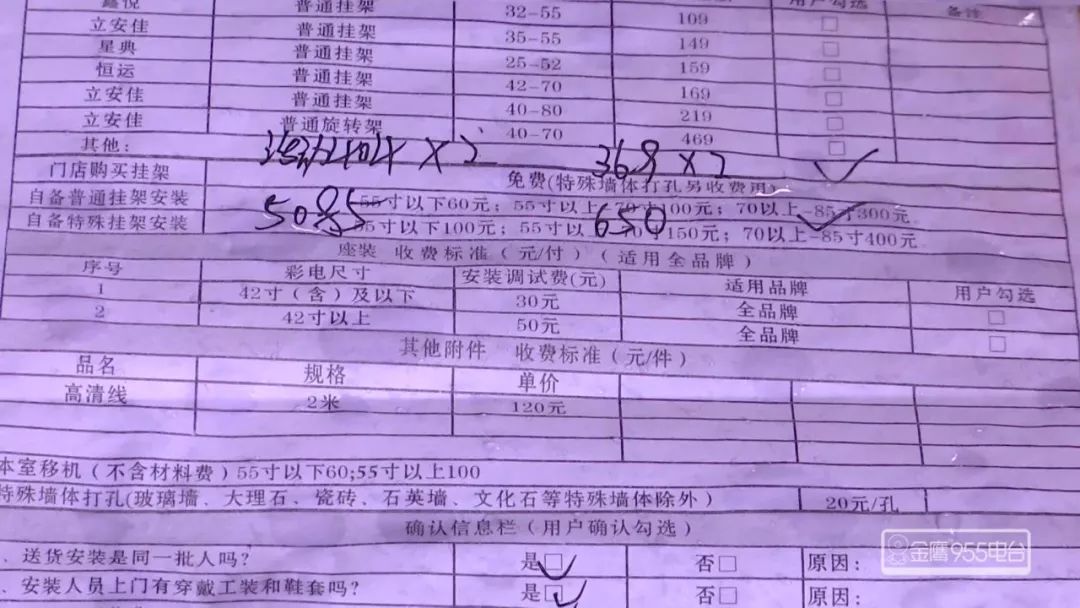 鑫悦 普通挂架 32-55 109 □
立安佳 普通挂架 35-55 149 □
星典 普通挂架 25-52 159 □
恒运 普通挂架 42-70 169 □
立安佳 普通挂架 40-80 219 □
立安佳 普通旋转架 40-70 469 □
用户勾选 备注
其他: X 2 368 X 2 ✓
门店购买挂架 免费(特殊墙体打孔另收费用)
自备普通挂架安装 55寸以下60元; 55寸以上-70寸100元; 70以上-85寸300元
自备特殊挂架安装 55寸以下100元; 55寸以 寸150元; 70以上-85寸400元
5085 650 ✓
座装 收费标准(元/付)(适用全品牌)
序号 彩电尺寸 安装调试费(元) 适用品牌 用户勾选
1 42寸(含)及以下 30元 全品牌 □
2 42寸以上 50元 全品牌 □
其他附件 收费标准(元/件)
品名 规格 单价
高清线 2米 120元
本室移机(不含材料费)55寸以下60;55寸以上100
特殊墙体打孔(玻璃墙、大理石、瓷砖、石英墙、文化石等特殊墙体除外) 20元/孔
确认信息栏(用户确认勾选)
、送货安装是同一批人吗? 是□✓ 否□ 原因:
、安装人员上门有穿戴工装和鞋套吗? 是□✓ 否□ 原因:
金鹰955电台